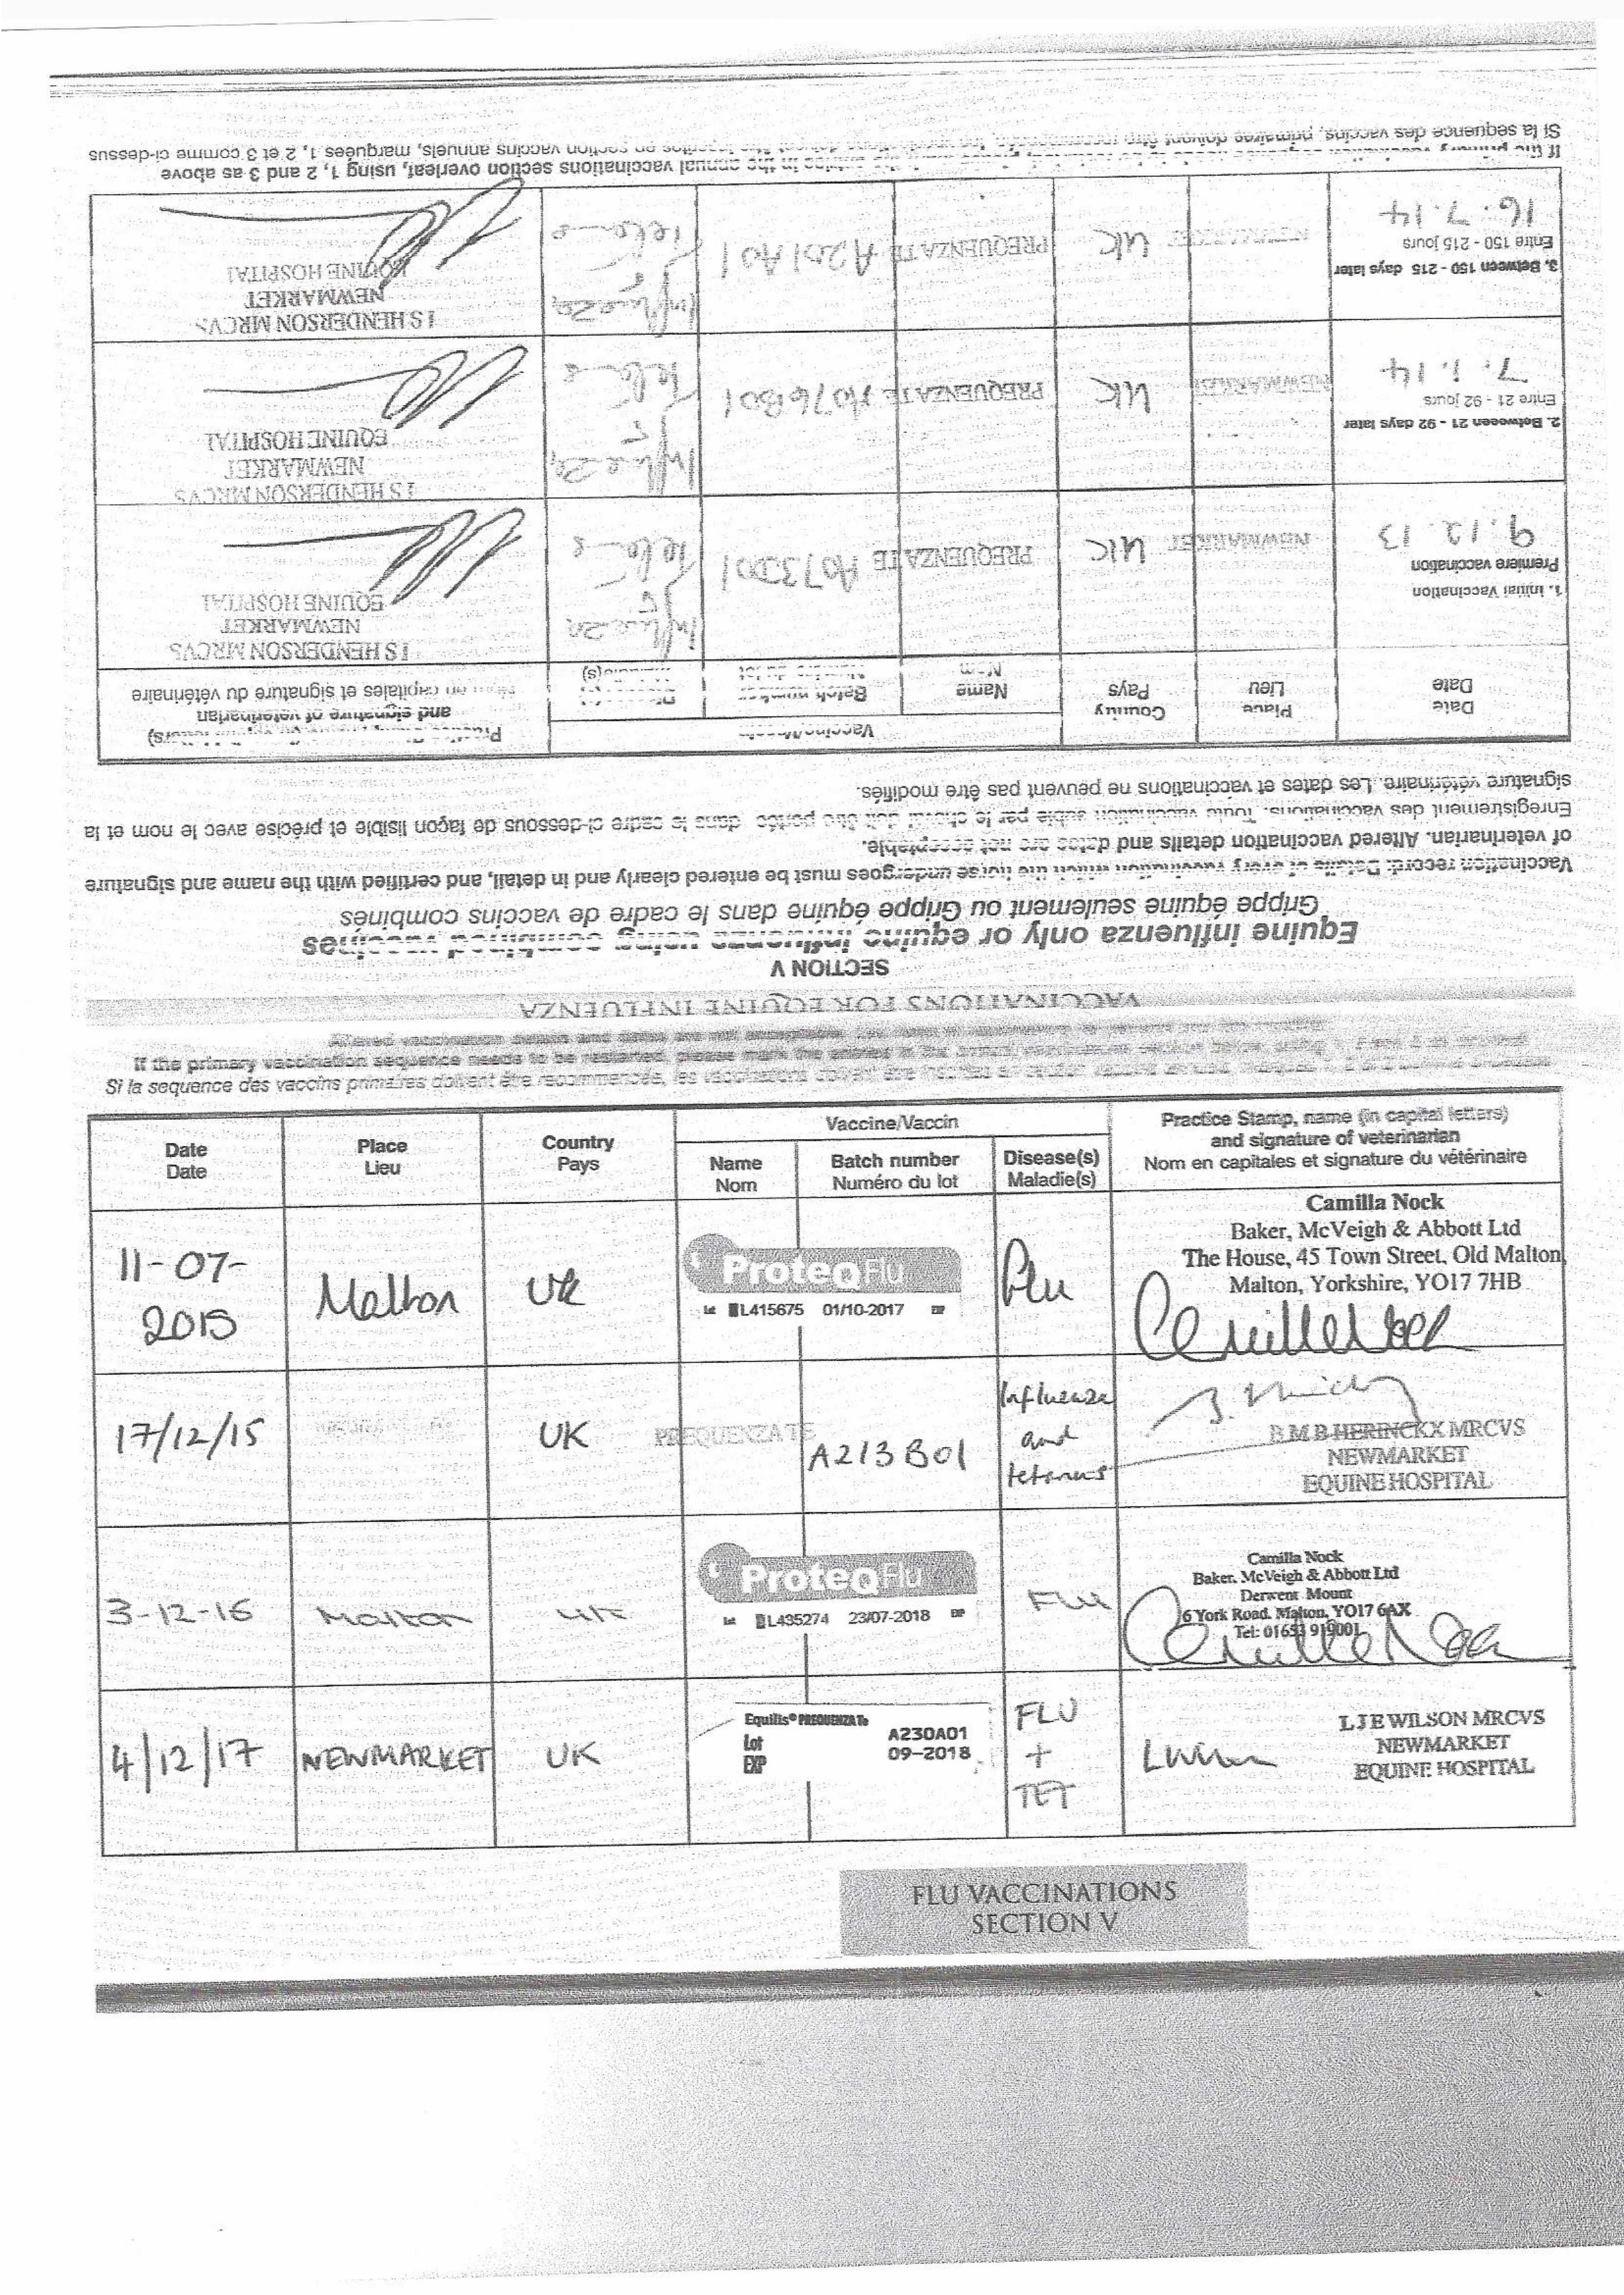 VACCINATIONS FOR EQUINE INFLUENZA
SECTION V
Equine influenza only or equine influenza using combined vaccines
Grippe équine seulement ou Grippe équine dans le cadre de vaccins combinés
Vaccination record: Details of every vaccination which the horse undergoes must be entered clearly and in detail, and certified with the name and signature
of veterinarian. Altered vaccination details and dates are not acceptable.
Enregistrement des vaccinations. Toute vaccination subie par le cheval doit être portée dans le cadre ci-dessous de façon lisible et précise avec le nom et la
signature vétérinaire. Les dates et vaccinations ne peuvent pas être modifiés.
Date
Date
Place
Lieu
Country
Pays
Vaccine/Vaccin
Name
Nom
Batch number
and signature of veterinarian
en capitales et signature du vétérinaire
1. Initial Vaccination
Premiere vaccination
9. 12. 13
NEWMARKET
UK
PREQUENZA TE
A073D01
Influenza
Tetanus
I S HENDERSON MRCVS
NEWMARKET
EQUINE HOSPITAL
2. Betweeen 21 - 92 days later
Entre 21 - 92 jours
7. 1. 14
NEWMARKET
UK
PREQUENZA TE
A076B01
Influenza
Tetanus
I S HENDERSON MRCVS
NEWMARKET
EQUINE HOSPITAL
3. Between 150 - 215 days later
Entre 150 - 215 jours
16. 7. 14
NEWMARKET
UK
PREQUENZA TE
A201A01
Influenza
Tetanus
I S HENDERSON MRCVS
NEWMARKET
EQUINE HOSPITAL
If the primary vaccination sequence needs to be restarted, please mark the entries in the annual vaccinations section overleaf, using 1, 2 and 3 as above
Si la sequence des vaccins, primaires doivent être recommencés, les vaccinations doivent être inscrites en section vaccins annuels, marquées 1, 2 et 3 comme ci-dessus
Altered vaccination details and dates are not acceptable.
If the primary vaccination sequence needs to be restarted, please mark the entries in the annual vaccinations section below, using 1, 2 and 3 as
Si la sequence des vaccins primaires doivent être recommencés, les vaccinations doivent être inscrites en section vaccins annuels,
Date
Date
Place
Lieu
Country
Pays
Vaccine/Vaccin
Name
Nom
Batch number
Numéro du lot
Disease(s)
Maladie(s)
Practice Stamp, name (in capital letters)
and signature of veterinarian
Nom en capitales et signature du vétérinaire
11-07-
2015
Malton
UK
ProteqFlu
Lot L415675 01/10-2017 EXP
Flu
Camilla Nock
Baker, McVeigh & Abbott Ltd
The House, 45 Town Street, Old Malton
Malton, Yorkshire, YO17 7HB
17/12/15
UK
PREQUENZA TE
A213B01
Influenza
and
tetanus
B M B HERINCKX MRCVS
NEWMARKET
EQUINE HOSPITAL
3-12-16
Malton
UK
ProteqFlu
Lot L435274 23/07-2018 EXP
FLU
Camilla Nock
Baker, McVeigh & Abbott Ltd
Derwent Mount
6 York Road, Malton, YO17 6AX
Tel: 01653 919001
4/12/17
NEWMARKET
UK
Equilis® PREQUENZA Te
Lot A230A01
EXP 09-2018
FLU
+
TET
L J E WILSON MRCVS
NEWMARKET
EQUINE HOSPITAL
FLU VACCINATIONS
SECTION V